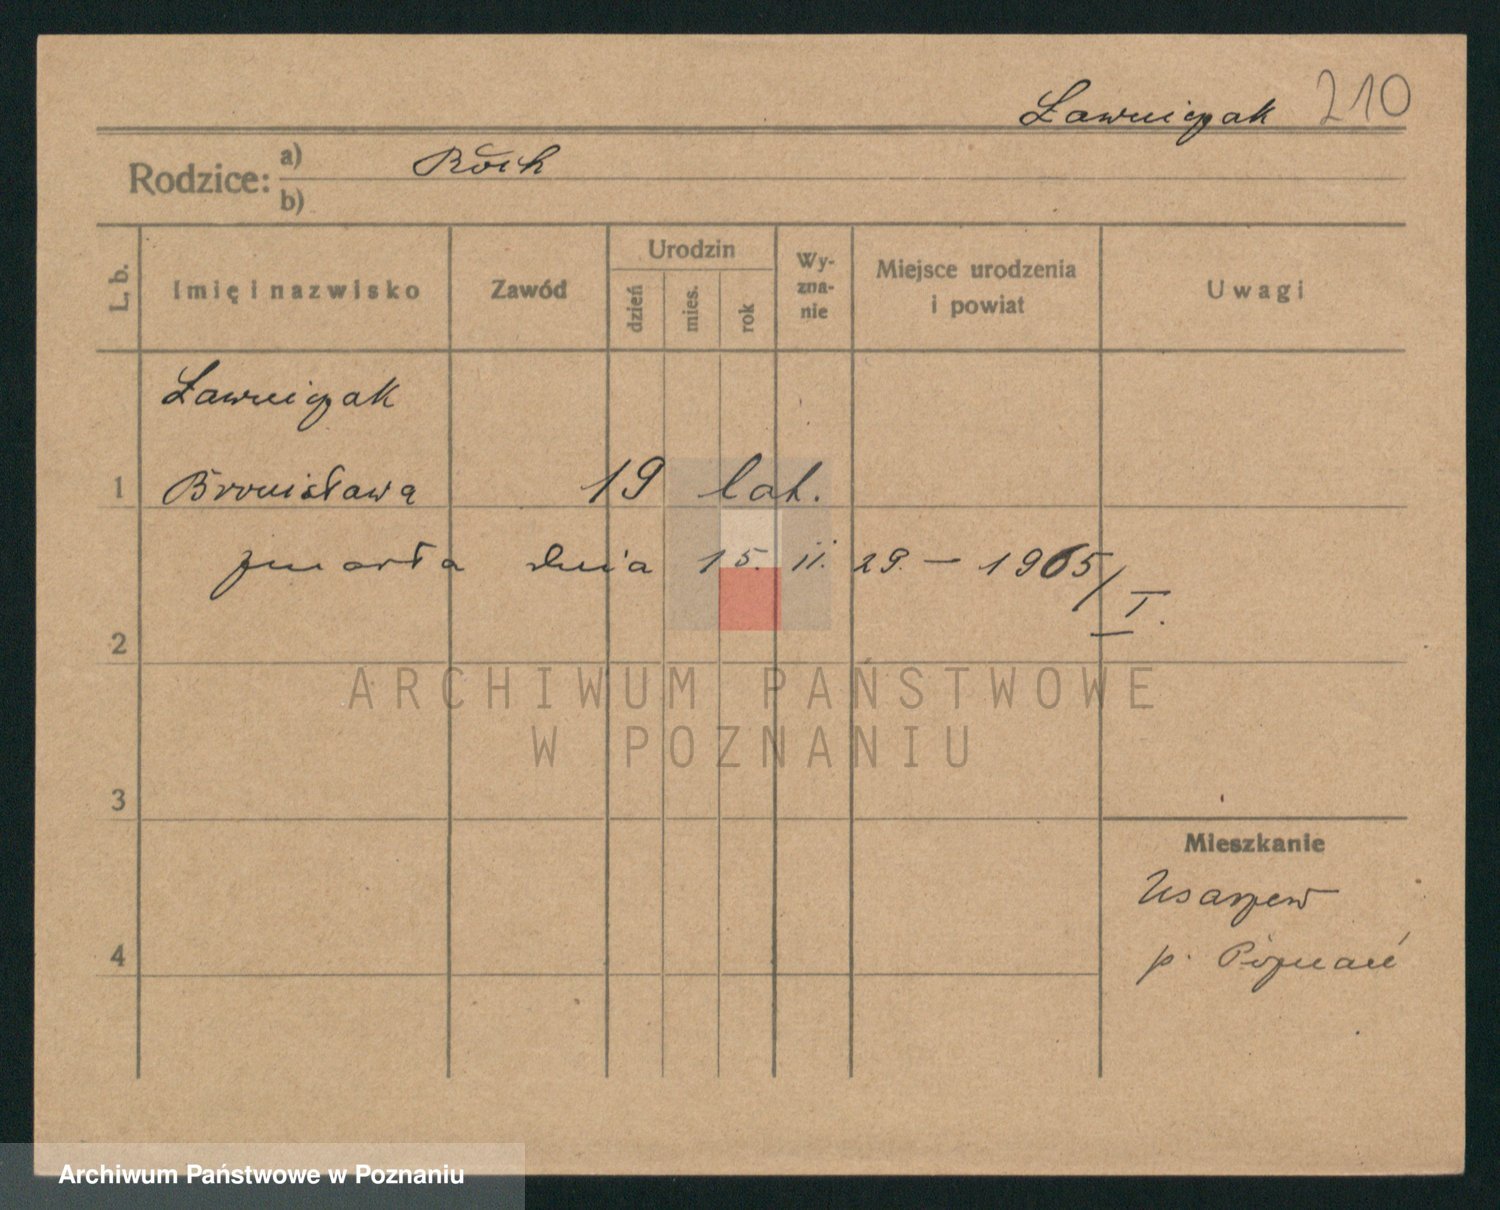 Ławniczak 210
Rodzice:
a) Roch
b)
L. b.
Imię i nazwisko
Zawód
Urodzin
dzień
mies.
rok
Wy-
zna-
nie
Miejsce urodzenia
i powiat
Uwagi
Ławniczak
1 Bronisława 19 lat.
zmarła dnia 15. II. 29. — 1965/I.
2
ARCHIWUM PAŃSTWOWE
W POZNANIU
3
Mieszkanie
4
p. Poznań
Archiwum Państwowe w Poznaniu